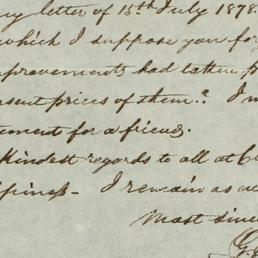 my letter of 15th July 1878.
which I suppose you for
provements had taken p
sent prices of them? I
tement for a friend.
Kindest regards to all at
piness - I remain as
most sinc
G.